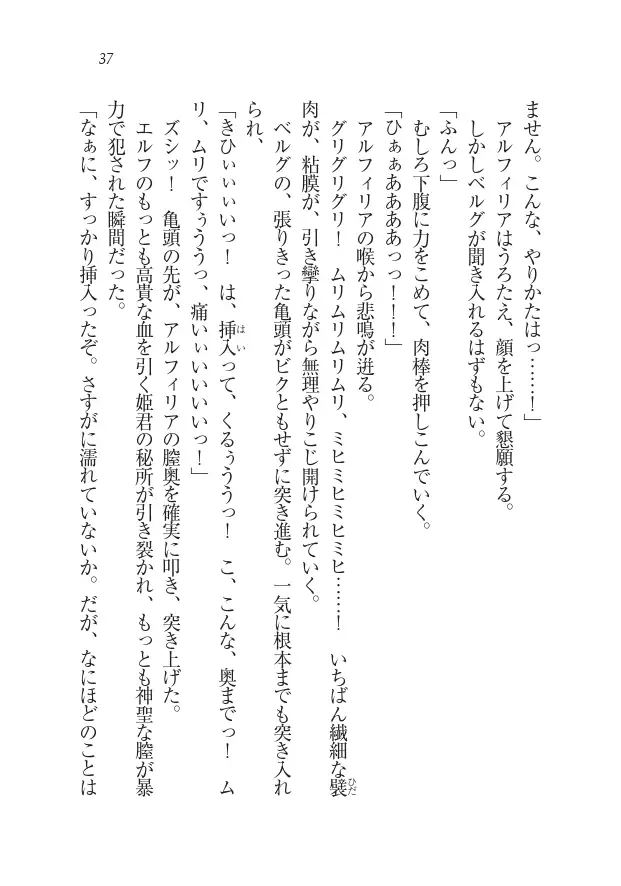 37
ません。こんな、やりかたはっ……！」
アルフィリアはうろたえ、顔を上げて懇願する。
しかしベルグが聞き入れるはずもない。
「ふんっ」
むしろ下腹に力をこめて、肉棒を押しこんでいく。
「ひぁぁああああっっ！！！」
アルフィリアの喉から悲鳴が迸る。
グリグリグリ！　ムリムリムリムリ、ミヒミヒミヒミヒ……！　いちばん繊細な襞
肉が、粘膜が、引き攣りながら無理やりこじ開けられていく。
ベルグの、張りきった亀頭がビクともせずに突き進む。一気に根本までも突き入れ
られ、
「きひぃぃぃいっ！　は、挿入って、くるぅううっ！　こ、こんな、奥までっ！　ム
リ、ムリですぅううっ、痛いぃいいいいっ！」
ズシッ！　亀頭の先が、アルフィリアの膣奥を確実に叩き、突き上げた。
エルフのもっとも高貴な血を引く姫君の秘所が引き裂かれ、もっとも神聖な膣が暴
力で犯された瞬間だった。
「なぁに、すっかり挿入ったぞ。さすがに濡れていないか。だが、なにほどのことは